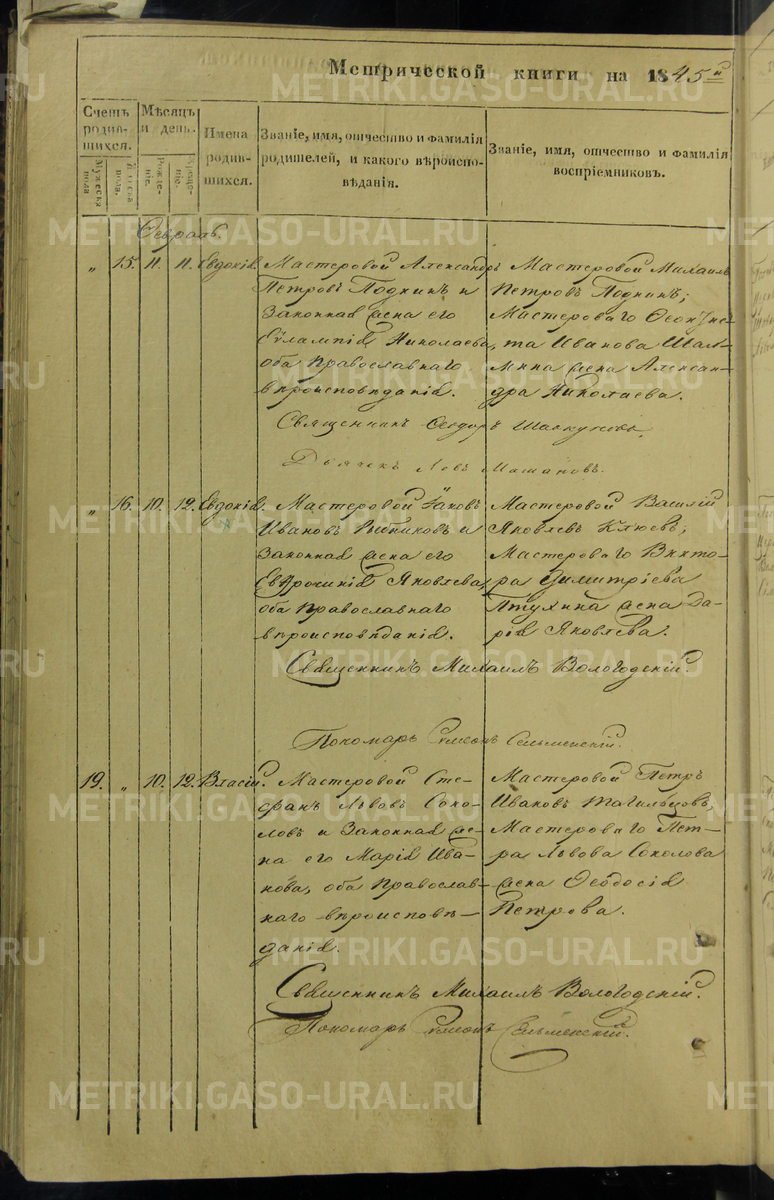 Метрической книги на 1845й
Счетъ родившихся.
Мужеска пола
Женска пола.
Мѣсяцъ и день.
Рожденіе.
Крещеніе.
Имена родившихся.
Званіе, имя, отчество и фамилія
родителей, и какого вѣроиспо-
вѣданія.
Званіе, имя, отчество и фамилія
воспріемниковъ.
Февраль.
„ 15. 11. 11. Евдокія.
Мастеровой Александръ
Петровъ Подкинъ и
Законная жена его
Евлампія Николаева,
оба Православнаго
вѣроисповѣданія.
Мастеровой Михаилъ
Петровъ Подкинъ;
Мастероваго
та Иванова
мина жена Алексан-
дра Николаева.
Священникъ Феодоръ
Дьячекъ Левъ
„ 16. 10. 12. Евдокія.
Мастеровой Іаковъ
Ивановъ и
Законная жена его
Евфросинія Яковлева,
оба Православнаго
вѣроисповѣданія.
Мастеровой Василій
Яковлевъ Клюевъ;
Мастероваго Викто-
ра Димитріева
Птухина жена Да-
рія Яковлева.
Священникъ Михаилъ Вологодскій.
Пономарь Симеонъ
19. „ 10. 12. Власій.
Мастеровой Сте-
фанъ Львовъ Соко-
ловъ и Законная же-
на его Марія Ива-
нова, оба Православ-
наго вѣроисповѣ-
данія.
Мастеровой Петръ
Ивановъ Тагильцовъ,
Мастероваго Пет-
ра Львова Соколова
жена Феодосія
Петрова.
Священникъ Михаилъ Вологодскій.
Пономарь Симеонъ
METRIKI.GASO-URAL.RU